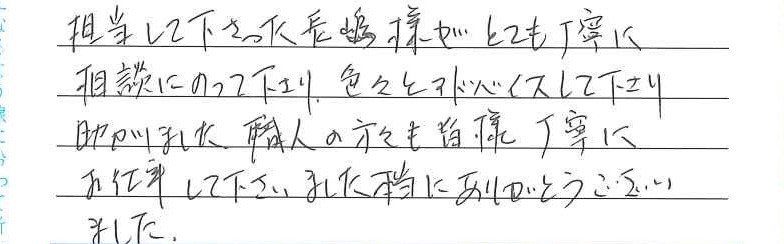 担当して下さった長嶋様がとても丁寧に
相談にのって下さり、色々とアドバイスして下さり
助かりました 職人の方々も皆様丁寧に
お仕事して下さいました 本当にありがとうござい
ました。